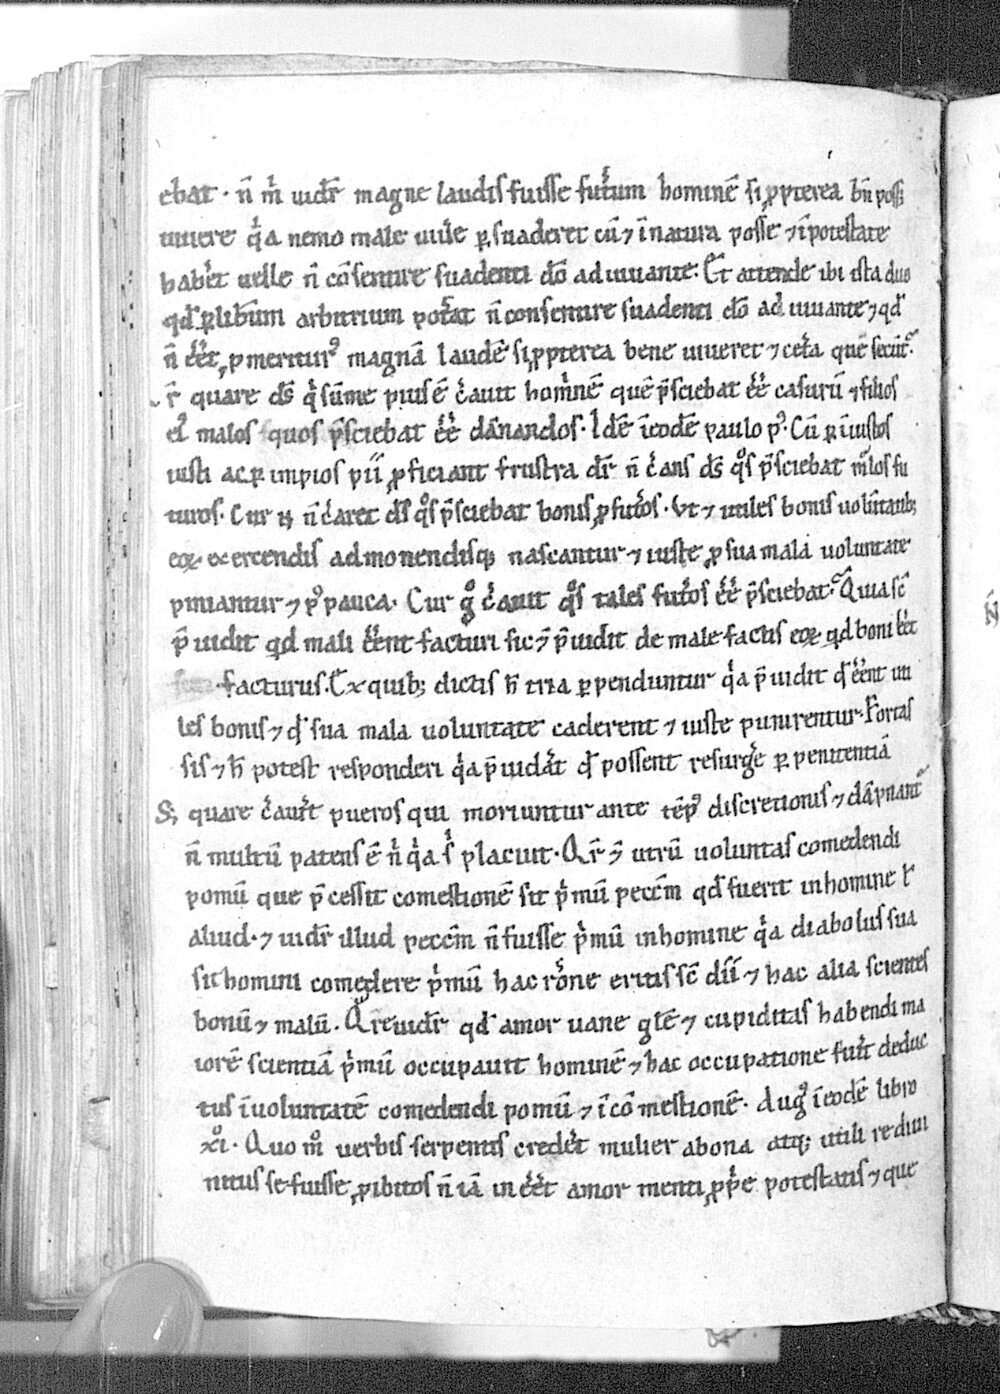 ebat · n̄ m̄ uidr̄ magne laudis fuisse futurum hominē si ꝓpterea bn̄ poss;
uiuere q̇a nemo male uiůe ꝑsuaderet cū ⁊ ī natura posse ⁊ ī potestate
haber̃et uelle n̄ cōsentire suadenti dō adiuuante: Et attende ibi ista duo
qđ ꝑ lib̄um arbitrium pot̃at n̄ consentire suadenti dō adiuuante ⁊ qđ
n̄ eēt ꝓmeritur᷒ magnā laudē si ꝓpterea bene uiueret ⁊ cet̃a que secunt᷒.
r̄ quare ds̄ q̇ sūme pius ē c̃auit hominē quē p̄sciebat eē̃ casurū ⁊ filios
ei᷒ malos quos p̄sciebat eē̃ dānandos. Idē ī eodē paulo p᷒. Cū ꝑ iniustos
iusti ac ꝑ impios pii ꝓficiant frustra dr̄ n̄ c̃ans ds̄ q̊s p̄sciebat m̃los fu
turos. Cur n̄ c̃aret ds̄ q̊s p̄sciebat bonis ꝓfuturos. Vt ⁊ utiles bonis uolūtatib;
eoꝝ exercendis admonendisq; nascantur ⁊ iuste ꝓ sua mala uoluntate
puniantur ⁊ p᷒ pauca. Cur g̊ c̃auit q̊s tales futuros eē̃ p̄sciebat. Quia sic̄
p̄uidit qđ mali eēnt facturi sic ⁊ p̄uidit de malefactis eoꝝ qđ boni eēt
facturus. Ex quib; dictis h̄ tria ꝑpenduntur q̇a p̄uidit qđ eēnt uti
les bonis ⁊ qđ sua mala uoluntate caderent ⁊ iuste punirentur. Fortas
sis ⁊ h̄ potest responderi q̇a p̄uidat qđ possent resurgẽ ꝑ penitentiā
S; quare c̃auit pueros qui moriuntur ante tēp᷒ discretionis ⁊ dāpnant᷒
n̄ multū patens ē n̄ q̇a s̄ placuit. Qr̄ ⁊ utrū uoluntas comedendi
pomū que p̄cessit comestionē sit p̄mū pecc̄m qđ fuerit in homine ł
aliud. ⁊ uidr̄ illud pecc̄m n̄ fuisse p̄mū in homine q̇a diabolus sua
sit homini comedere p̄mū hac rōne eritis sic̄ dii ⁊ hac alia scientes
bonū ⁊ malū. Qre uidr̄ qđ amor uane gl̄e ⁊ cupiditas habendi ma
iorē scientiā p̄mū occupauit hominē ⁊ hac occupatione fuit deduc
tus ī uoluntatē comedendi pomū ⁊ ī comestionē. Aug᷒ ī eodē libro
xi᷒. Quo m᷒ uerbis serpentis crederet mulier a bona atq; utili re diui
nitus se fuisse ꝓhibitos n̄ iā in eēt amor menti ꝓprie potestatis ⁊ que